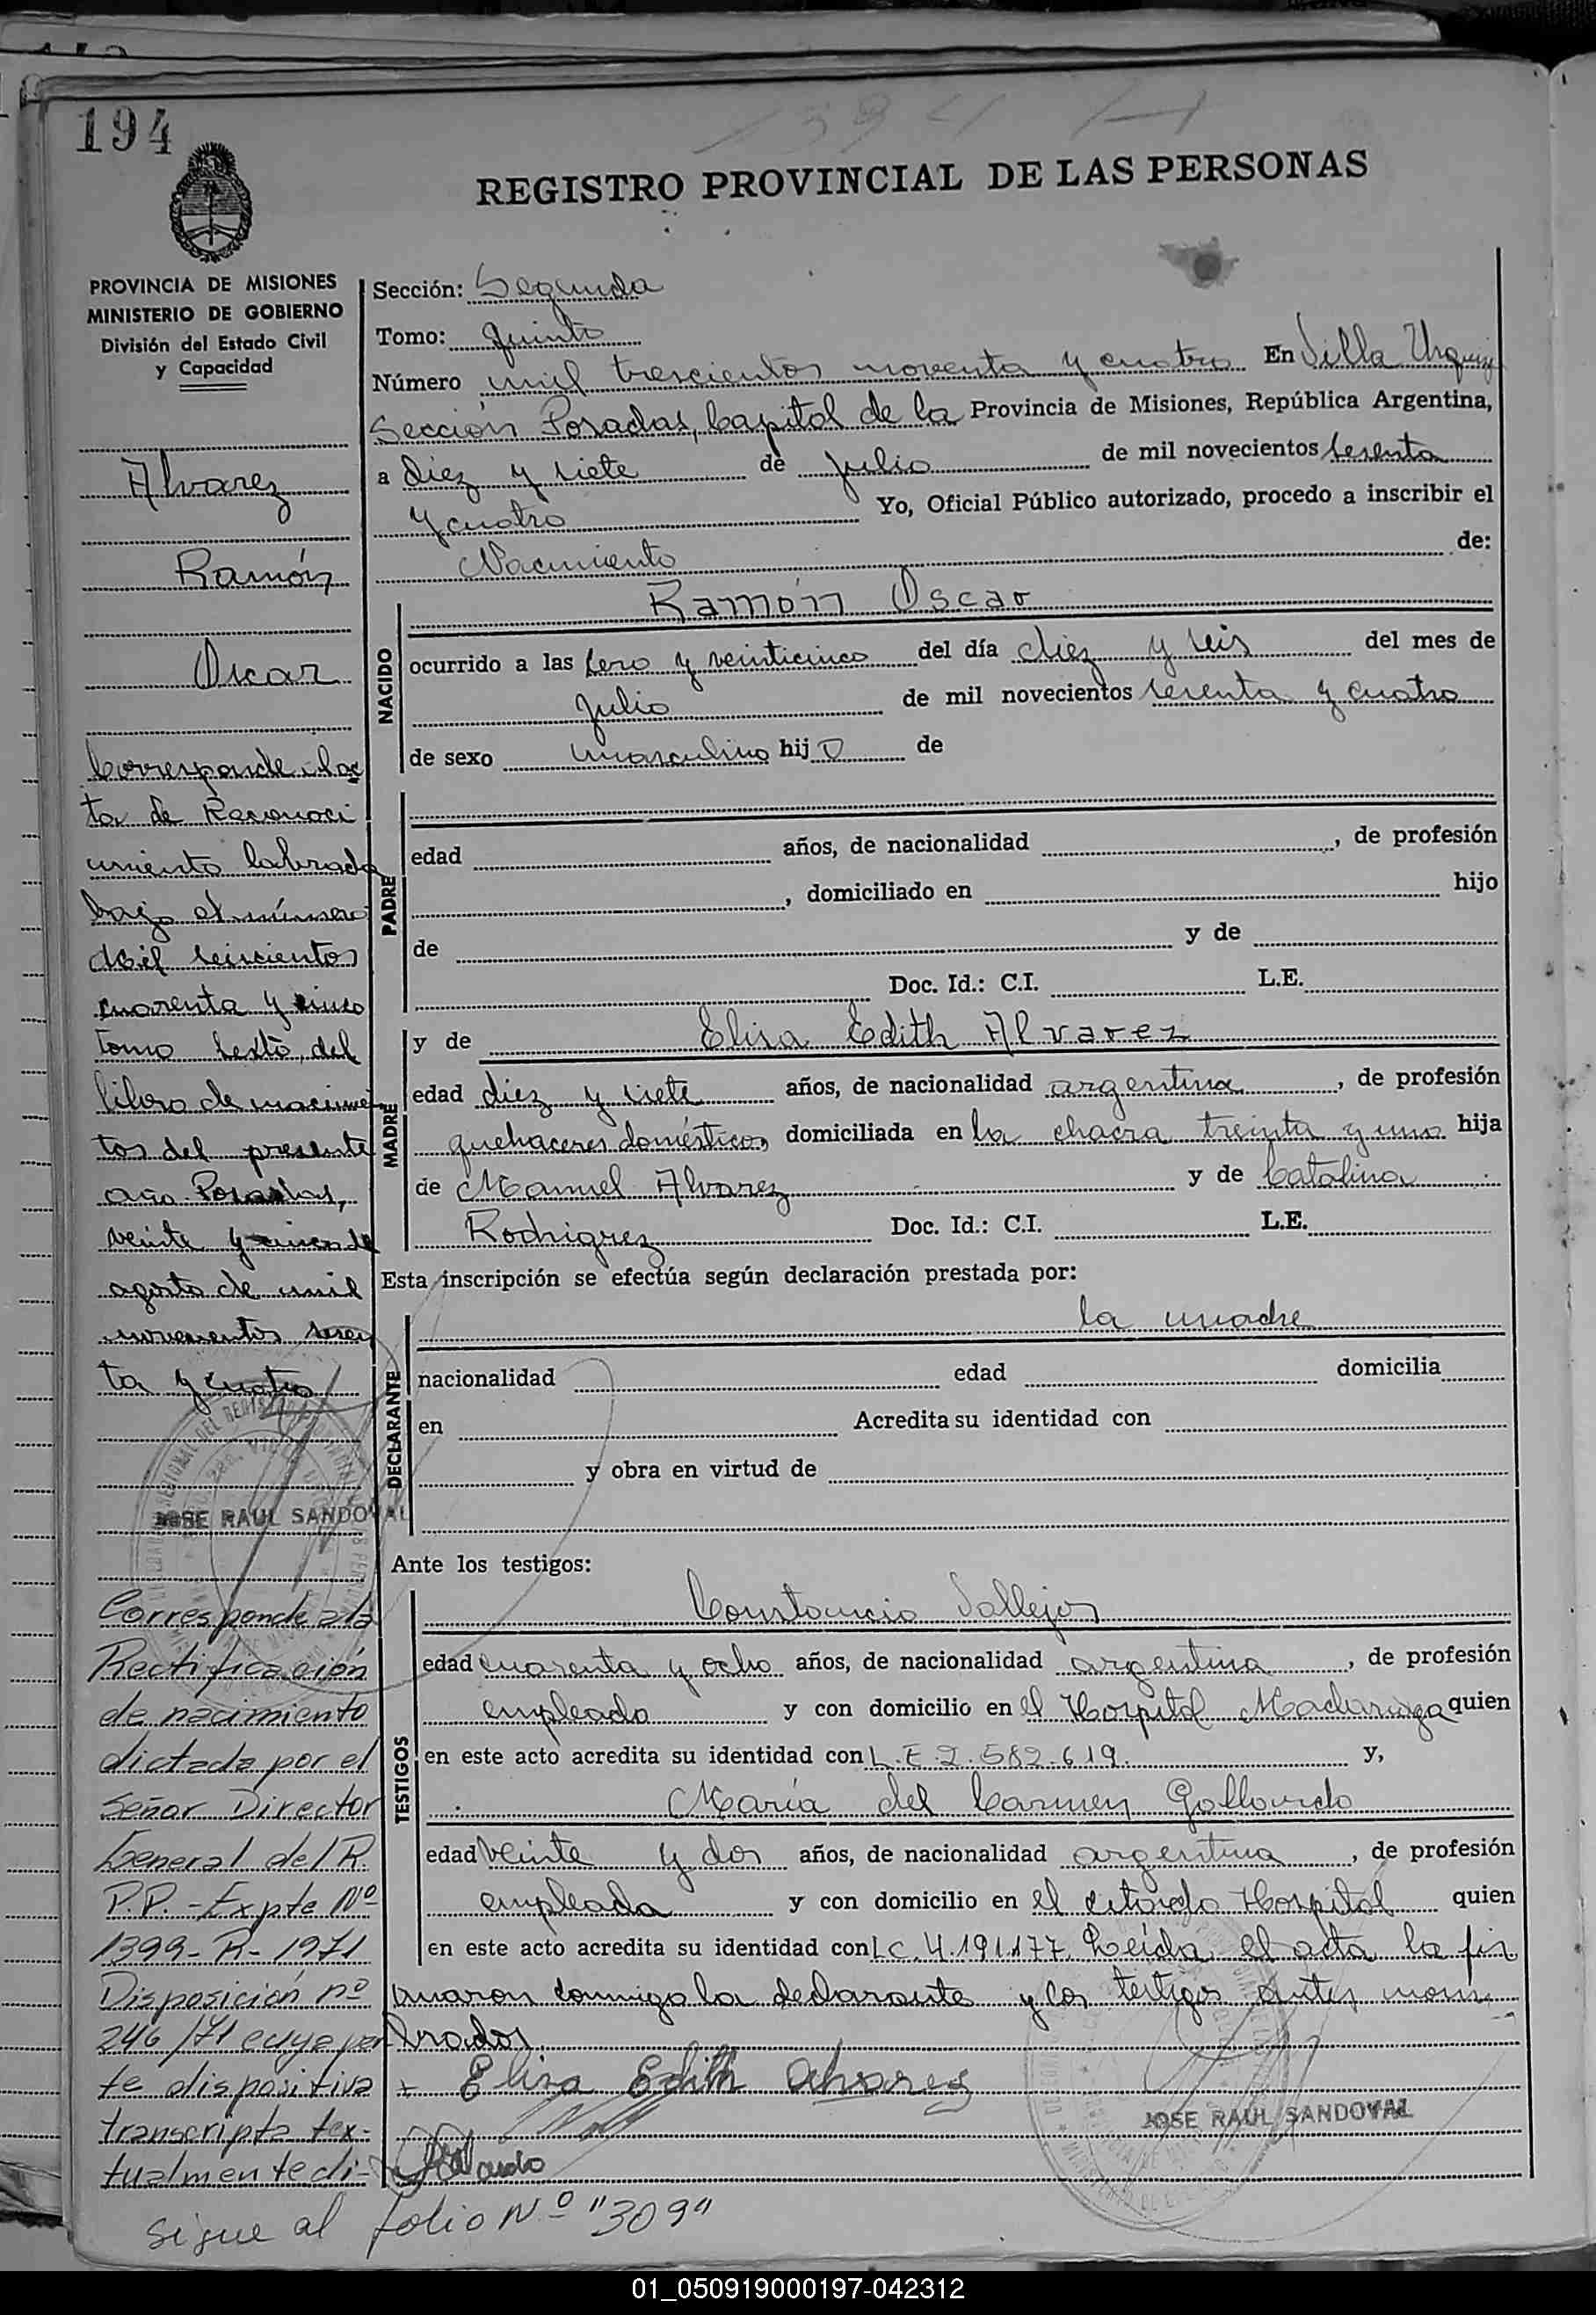 194
1394
REGISTRO PROVINCIAL DE LAS PERSONAS
PROVINCIA DE MISIONES
MINISTERIO DE GOBIERNO
División del Estado Civil
y Capacidad
Alvarez
Ramón
Oscar
Corresponde al ac
ta de Reconoci
miento labrada
bajo el número
mil seiscientos
cuarenta y cinco
tomo sexto, del
libro de nacimien
tos del presente
año. Posadas,
veinte y cinco de
agosto de mil
novecientos sesen
ta y cuatro
JOSE RAUL SANDOVAL
Corresponde a la
Rectificación
de nacimiento
dictada por el
Señor Director
General del R.
P.P. - Expte Nº
1399-R-1971
Disposición nº
246/71 cuya par
te dispositiva
transcripta tex-
tualmente di-
Sigue al folio Nº "309"
Sección: Segunda
Tomo: Quinto
Número mil trescientos noventa y cuatro En Villa Urquiza
Sección Posadas, Capital de la Provincia de Misiones, República Argentina,
a diez y siete de Julio de mil novecientos sesenta
y cuatro Yo, Oficial Público autorizado, procedo a inscribir el
Nacimiento de:
NACIDO
Ramón Oscar
ocurrido a las cero y veinticinco del día diez y seis del mes de
Julio de mil novecientos sesenta y cuatro
de sexo masculino hijo de
PADRE
edad años, de nacionalidad , de profesión
, domiciliado en hijo
de y de
Doc. Id.: C.I. L.E.
MADRE
y de Elisa Edith Alvarez
edad diez y siete años, de nacionalidad argentina , de profesión
quehaceres domésticos, domiciliada en la chacra treinta y uno hija
de Manuel Alvarez y de Catalina
Rodriguez Doc. Id.: C.I. L.E.
Esta inscripción se efectúa según declaración prestada por:
DECLARANTE
la madre
nacionalidad edad domicilia
en Acredita su identidad con
y obra en virtud de
Ante los testigos:
TESTIGOS
Constancio Vallejos
edad cuarenta y ocho años, de nacionalidad argentina , de profesión
empleado y con domicilio en el Hospital Madariaga quien
en este acto acredita su identidad con L.E.2.582.619. y,
María del Carmen Gallardo
edad veinte y dos años, de nacionalidad argentina , de profesión
empleada y con domicilio en el citado Hospital quien
en este acto acredita su identidad con LC.4.191.177. Leída el acta la fir
maron conmigo la declarante y los testigos antes nom
brados.
Elisa Edith Alvarez
JOSE RAUL SANDOVAL
01_050919000197-042312